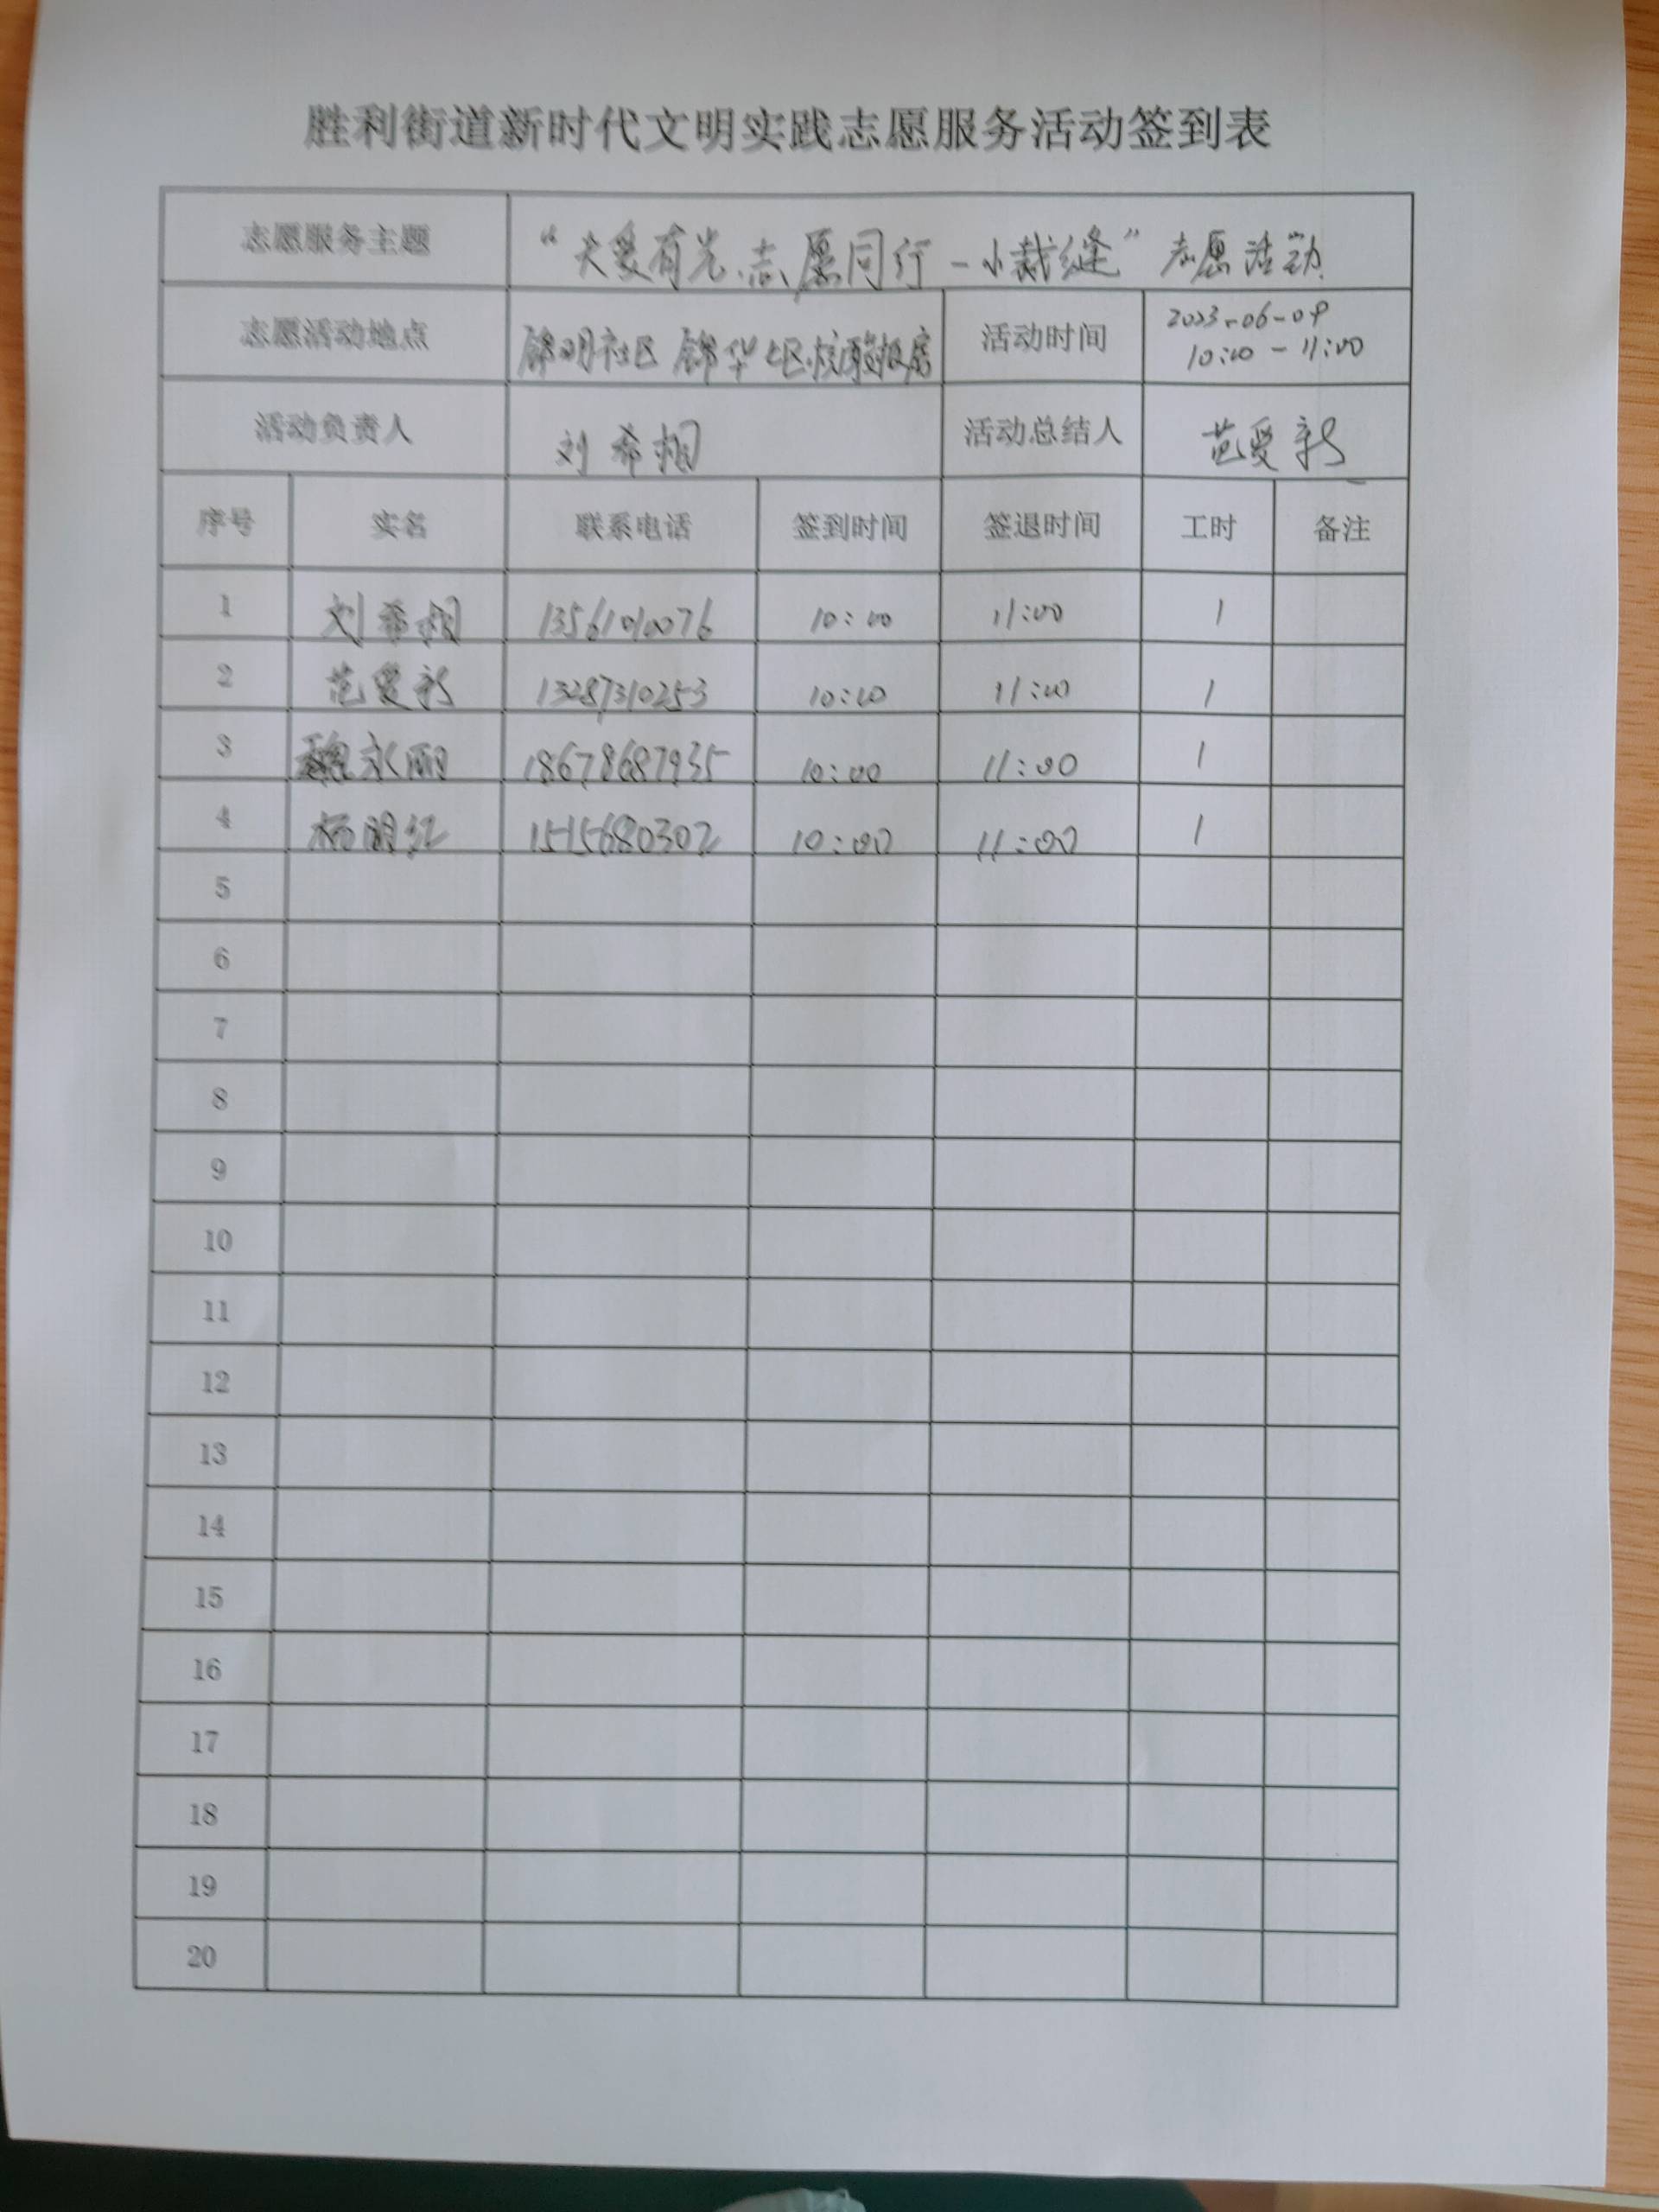 胜利街道新时代文明实践志愿服务活动签到表
志愿服务主题 “大爱有光、志愿同行-小裁缝”志愿活动
志愿活动地点 锦明社区 锦华七区核酸板房 活动时间 2023-06-09
10:00-11:00
活动负责人 刘希相 活动总结人 范爱新
序号 实名 联系电话 签到时间 签退时间 工时 备注
1 刘希相 13561010076 10:00 11:00 1
2 范爱新 13287310253 10:00 11:00 1
3 魏永丽 18678687935 10:00 11:00 1
4 杨明红 1515680302 10:00 11:00 1
5
6
7
8
9
10
11
12
13
14
15
16
17
18
19
20